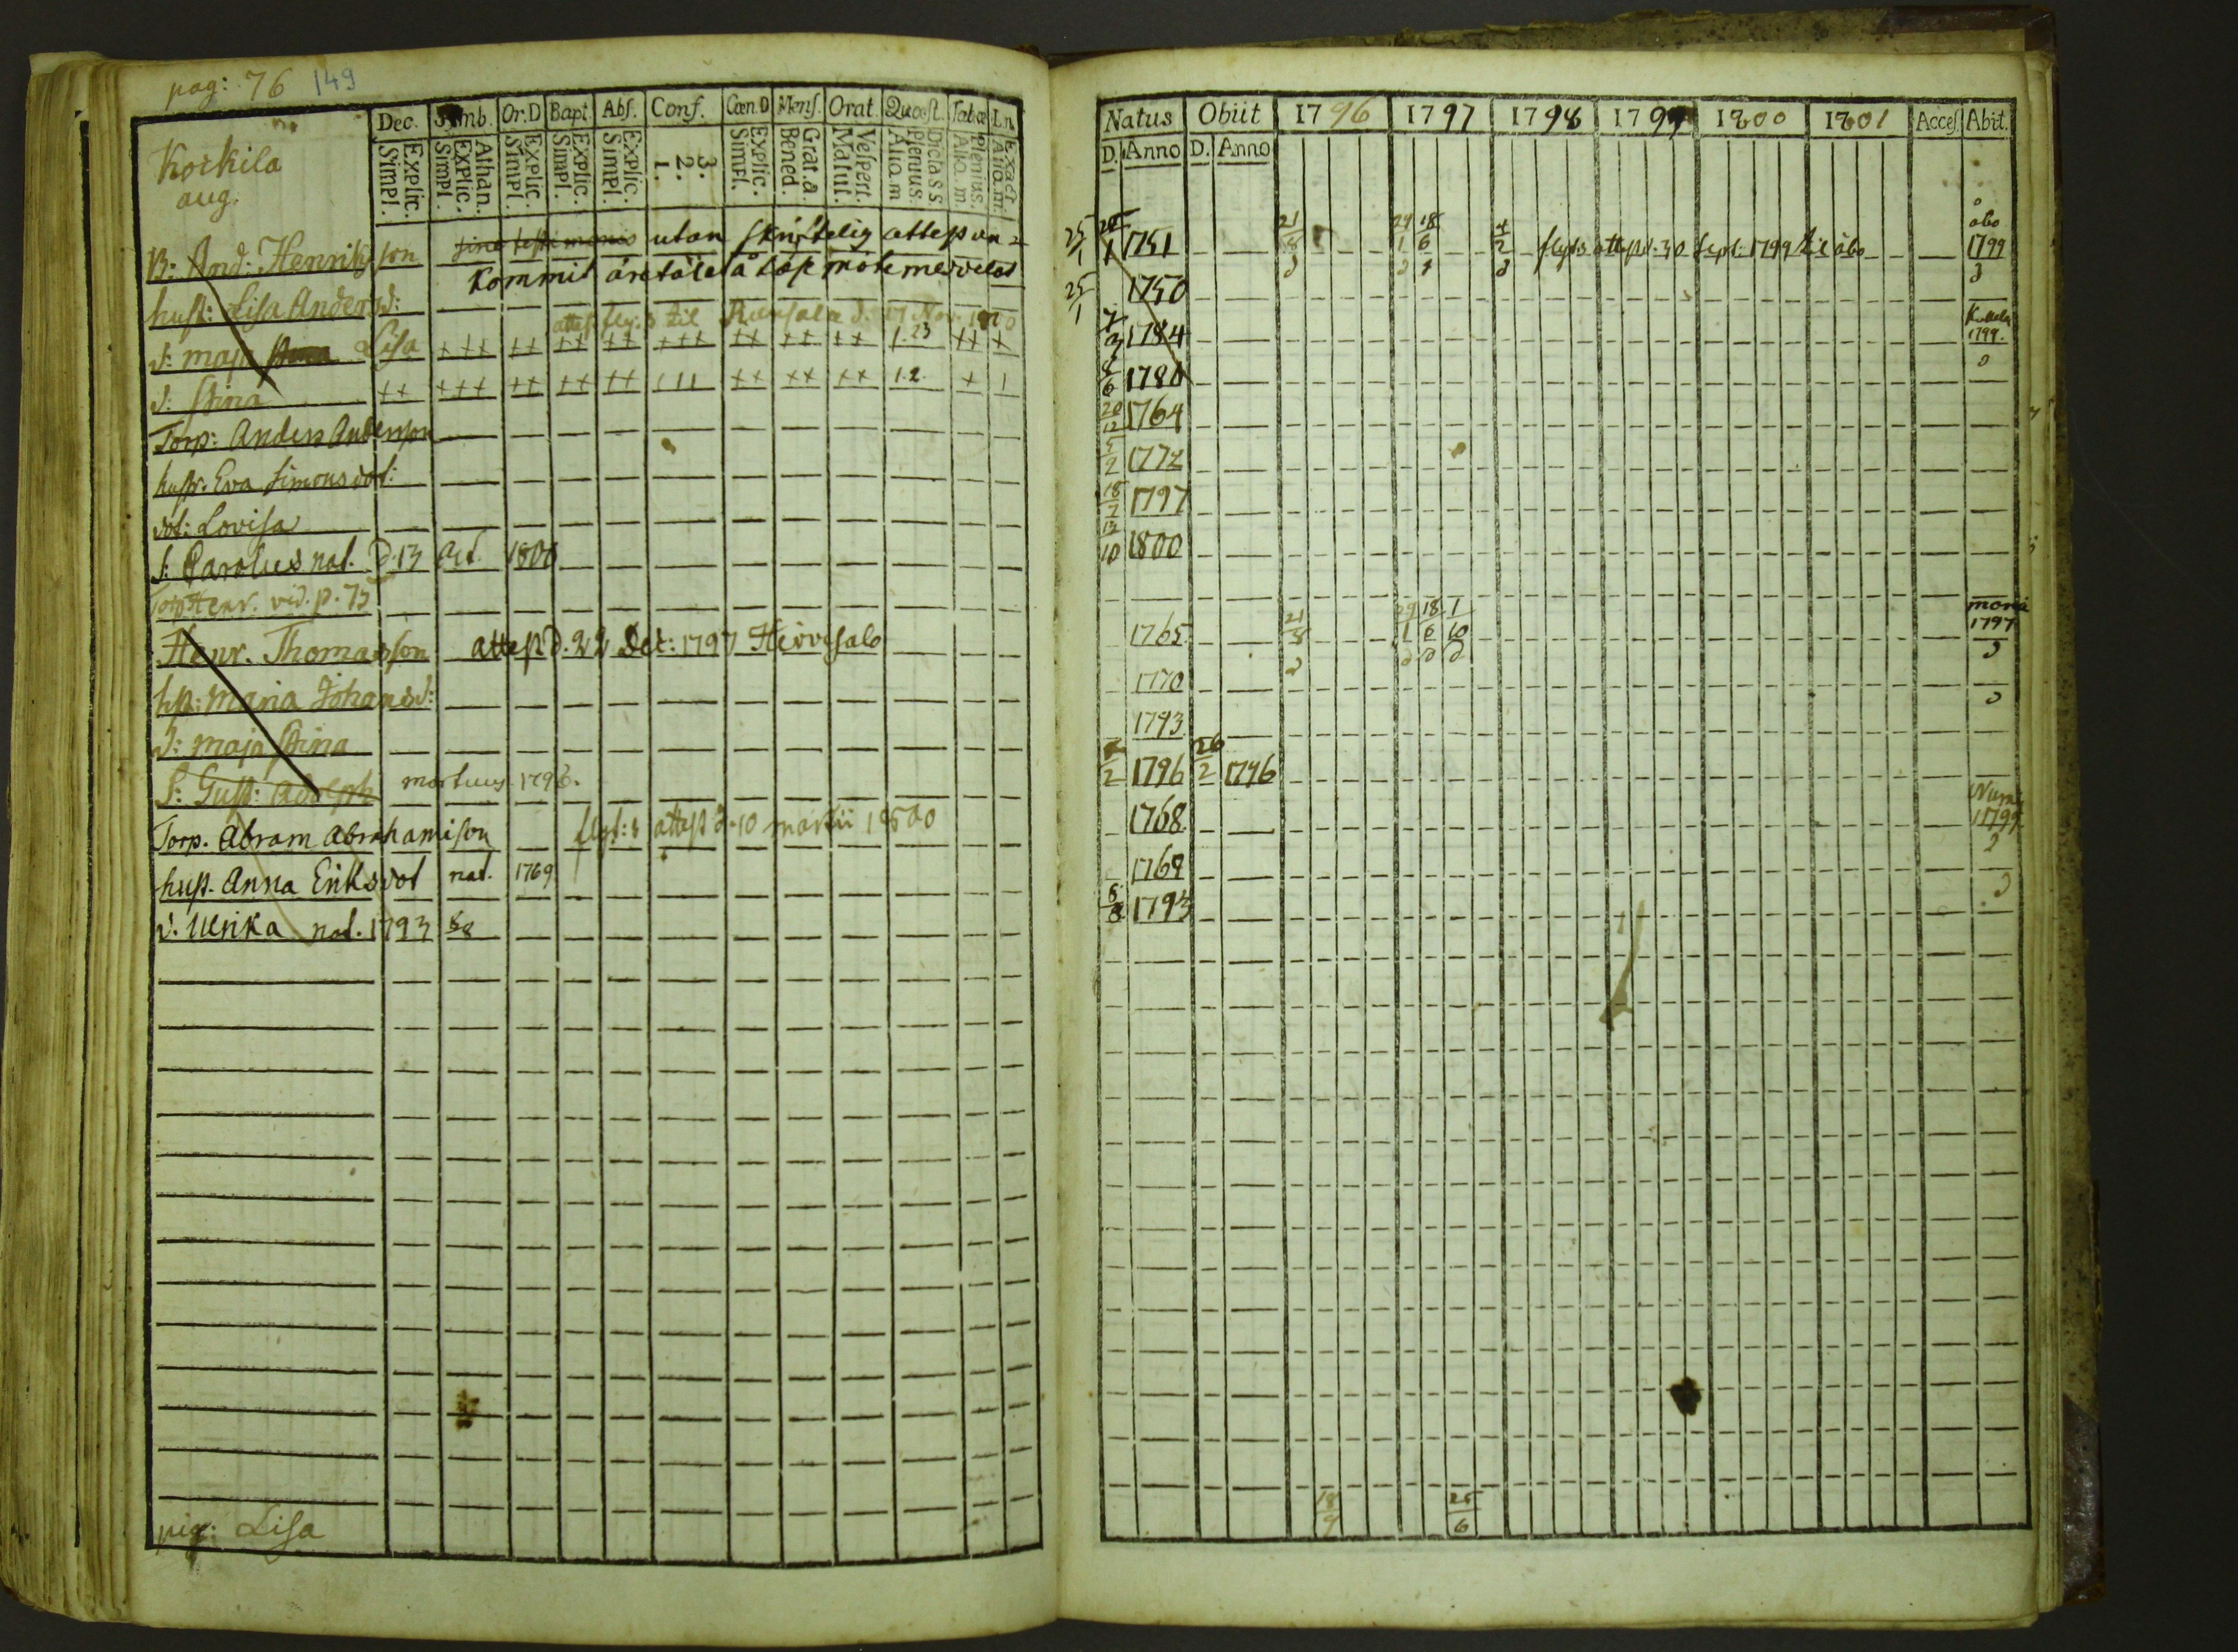 pag: 76 149
Dec. Symb. Or.D Bapt. Abs. Conf. Cœn.D Mens. Orat. Quæst. Tabæ
Simpl. Explic. Simpl. Explic. Athan. Simpl. Explic. Simpl. Explic. Simpl. Explic. 1. 2. 3. Simpl. Explic. Bened. Grat.a. Matut. Vespert. Aliq.m Plenius. Dicta S S Aliq.m. Plenius. Aliq.m. Exact
Korkila
aug.
B: And: Henriksson sine testimonio utan skriftelig attest
Kommit
hust: Lisa Andersd:
attest til d: 17 Nov.
d: maja Lisa +++ ++ ++ ++ +++ ++ ++ ++ 1.23 ++ +
d: Stina ++ +++ ++ ++ ++ 111 ++ ++ ++ 1.2. + 1
Torp: Anders Andersson
hustr: Eva Simonsdot:
dot: Lovisa
S: Carolus nat. D.13 Oct. 1800
Torp Henr. vid. p. 75
Henr. Thomasson attest D. 22 Oct: 1797 Hirvisalo
hst: Maria Johansd:
D: Maja Stina
S: Gust: Adolph mortuus 1796.
Torp. Abram Abrahamsson attest d. 10 martii 1800
hust. Anna Eriksdot nat. 1769
d. Ulrika nat. 1793 5/8
pig: Lisa
Natus Obiit 1796 1797 1798 1799 1800 1801 Acces. Abit.
D. Anno D. Anno
25/1 1751 21/8 29/1 18/6 4/2 attest d. 30 Sept: 1799 til åbo åbo 1799
25/1 1750
1784 1799.
8/6 1780
20/12 1764
5/2 1772
18/7 1797
13/10 1800
1765 21/8 29/1 18/6 1/10 1797
1770
1793
1796 26/2 1796
1768 1799
1769
5/8 1793
18/9 25/6